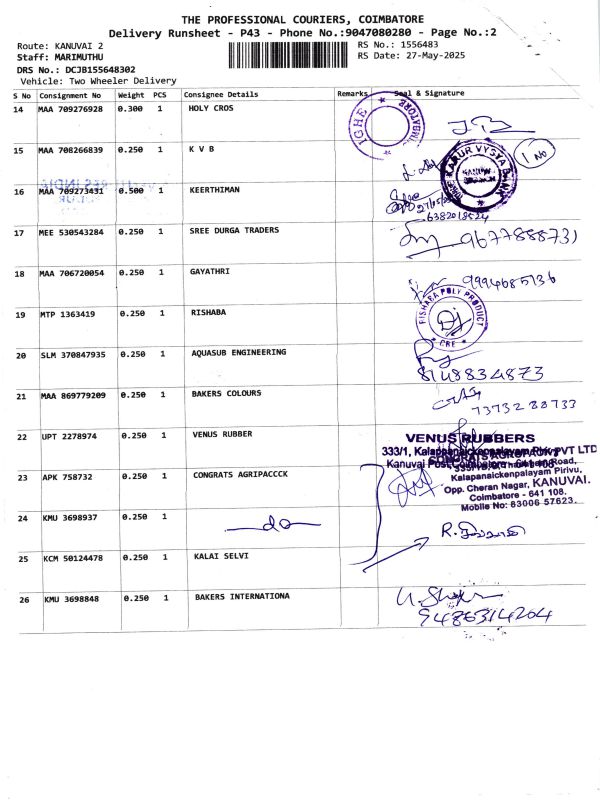 THE PROFESSIONAL COURIERS, COIMBATORE
Delivery Runsheet - P43 - Phone No.:9047080280 - Page No.:2
Route: KANUVAI 2
RS No.: 1556483
Staff: MARIMUTHU
RS Date: 27-May-2025
DRS No.: DCJB155648302
Vehicle: Two Wheeler Delivery
S No Consignment No Weight PCS Consignee Details Remarks Seal & Signature
14 MAA 709276928 0.300 1 HOLY CROS
IGHE
15 MAA 708266839 0.250 1 K V B
KARUR VYSYA BANK
1 No
16 MAA 709273431 0.500 1 KEERTHIMAN
6382018524
17 MEE 530543284 0.250 1 SREE DURGA TRADERS
9677888731
18 MAA 706720054 0.250 1 GAYATHRI
9994685136
19 MTP 1363419 0.250 1 RISHABA
RISHABA POLY PRODUCT
CBE
20 SLM 370847935 0.250 1 AQUASUB ENGINEERING
8148834873
21 MAA 869779209 0.250 1 BAKERS COLOURS
73732 88733
22 UPT 2278974 0.250 1 VENUS RUBBER
VENUS RUBBERS
333/1, Kalappanaickenpalayam Pirivu,
23 APK 758732 0.250 1 CONGRATS AGRIPACCCK
Kalapanaickenpalayam Pirivu,
Opp. Cheran Nagar, KANUVAI.
Coimbatore - 641 108.
Mobile No: 63006 57623.
24 KMU 3698937 0.250 1 do
25 KCM 50124478 0.250 1 KALAI SELVI
26 KMU 3698848 0.250 1 BAKERS INTERNATIONA
9486314204